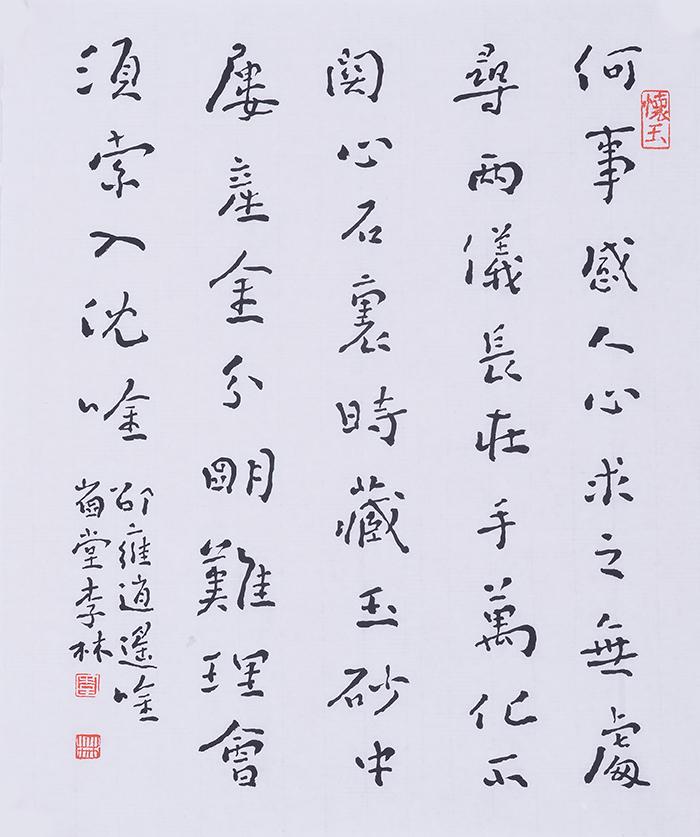 何事感人心求之無處
尋兩儀長在手萬化不
関心石裏時藏玉砂中
屢產金分明難理會
須索入沈唫
邵雍逍遙唫
崮堂李林
懷玉